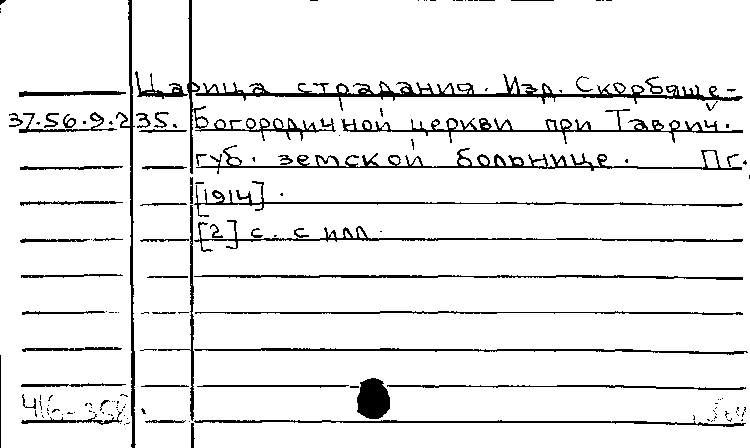 Царица страдания. Изд. Скорбяще-
37.56.9.235. Богородичной церкви при Таврич.
губ. земской больнице. Пг.,
[1914].
[2] с. с илл.
416-358.